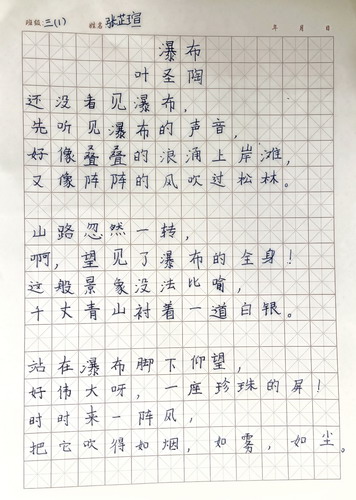 班级 三(1) 姓名 张芷瑄 年 月 日
瀑布
叶圣陶
还没看见瀑布,
先听见瀑布的声音,
好像叠叠的浪涌上岸滩,
又像阵阵的风吹过松林。
山路忽然一转,
啊,望见了瀑布的全身!
这般景象没法比喻,
千丈青山衬着一道白银。
站在瀑布脚下仰望,
好伟大呀,一座珍珠的屏!
时时来一阵风,
把它吹得如烟,如雾,如尘。